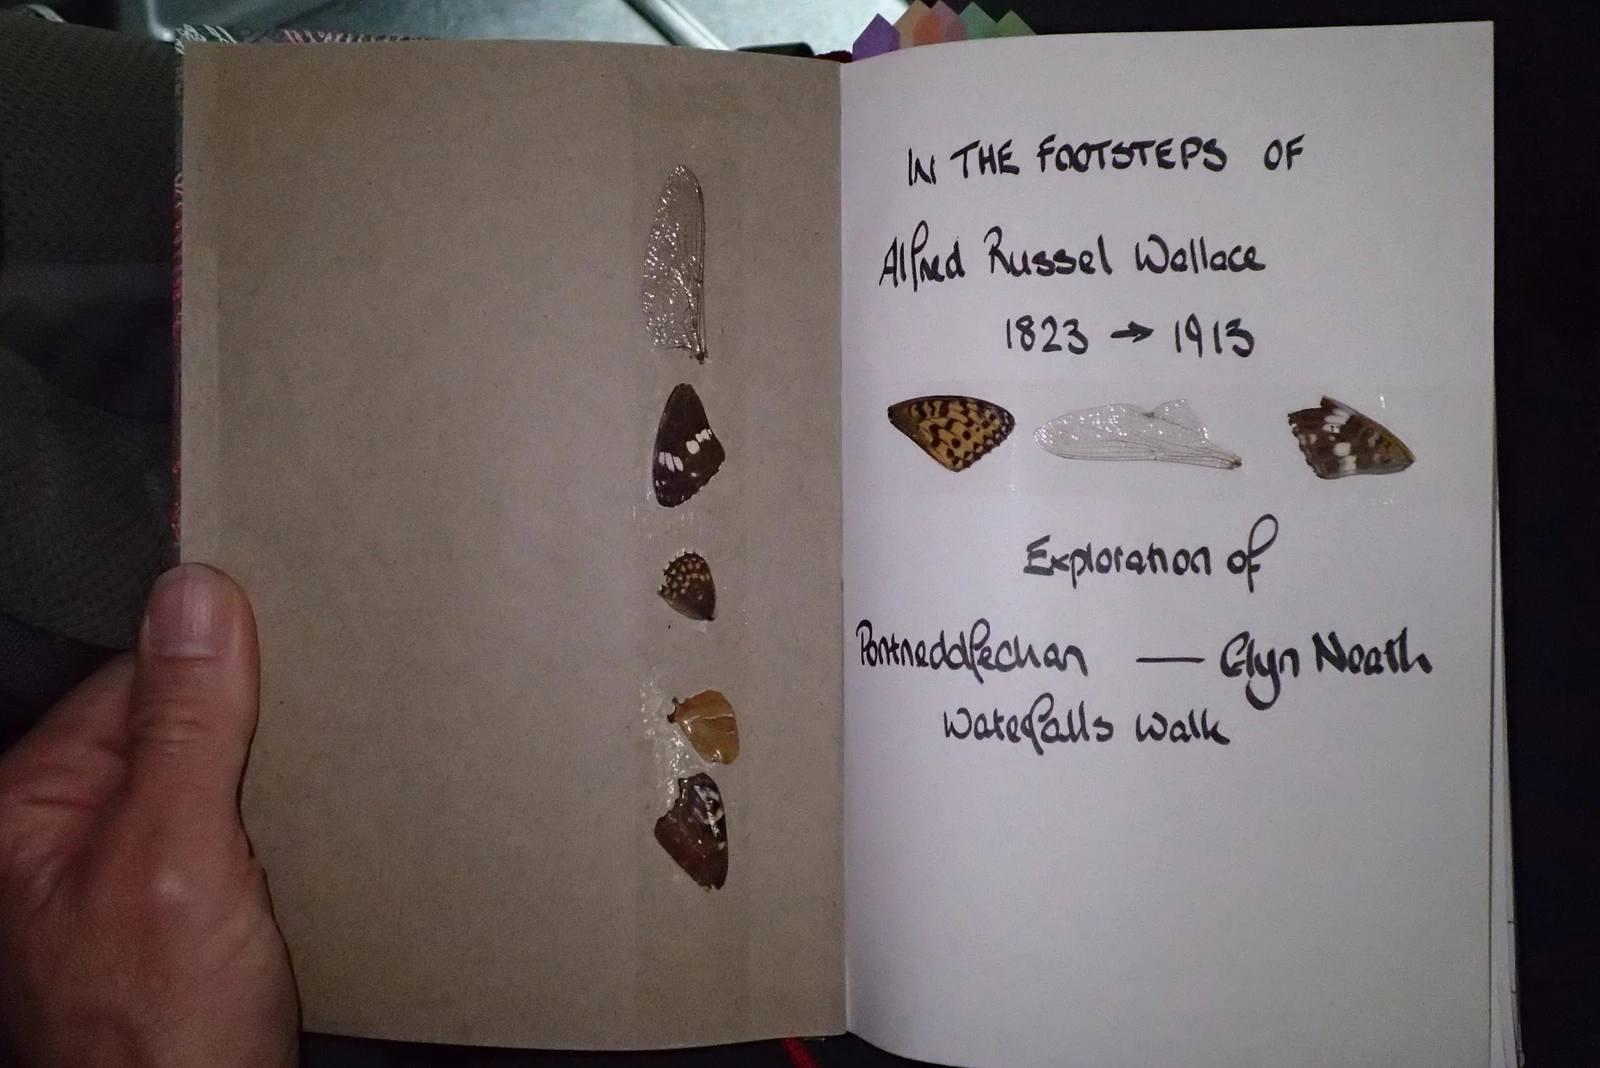 IN THE FOOTSTEPS OF
Alfred Russel Wallace
1823 → 1913
Exploration of
Pontneddfechan — Glyn Neath
Waterfalls Walk